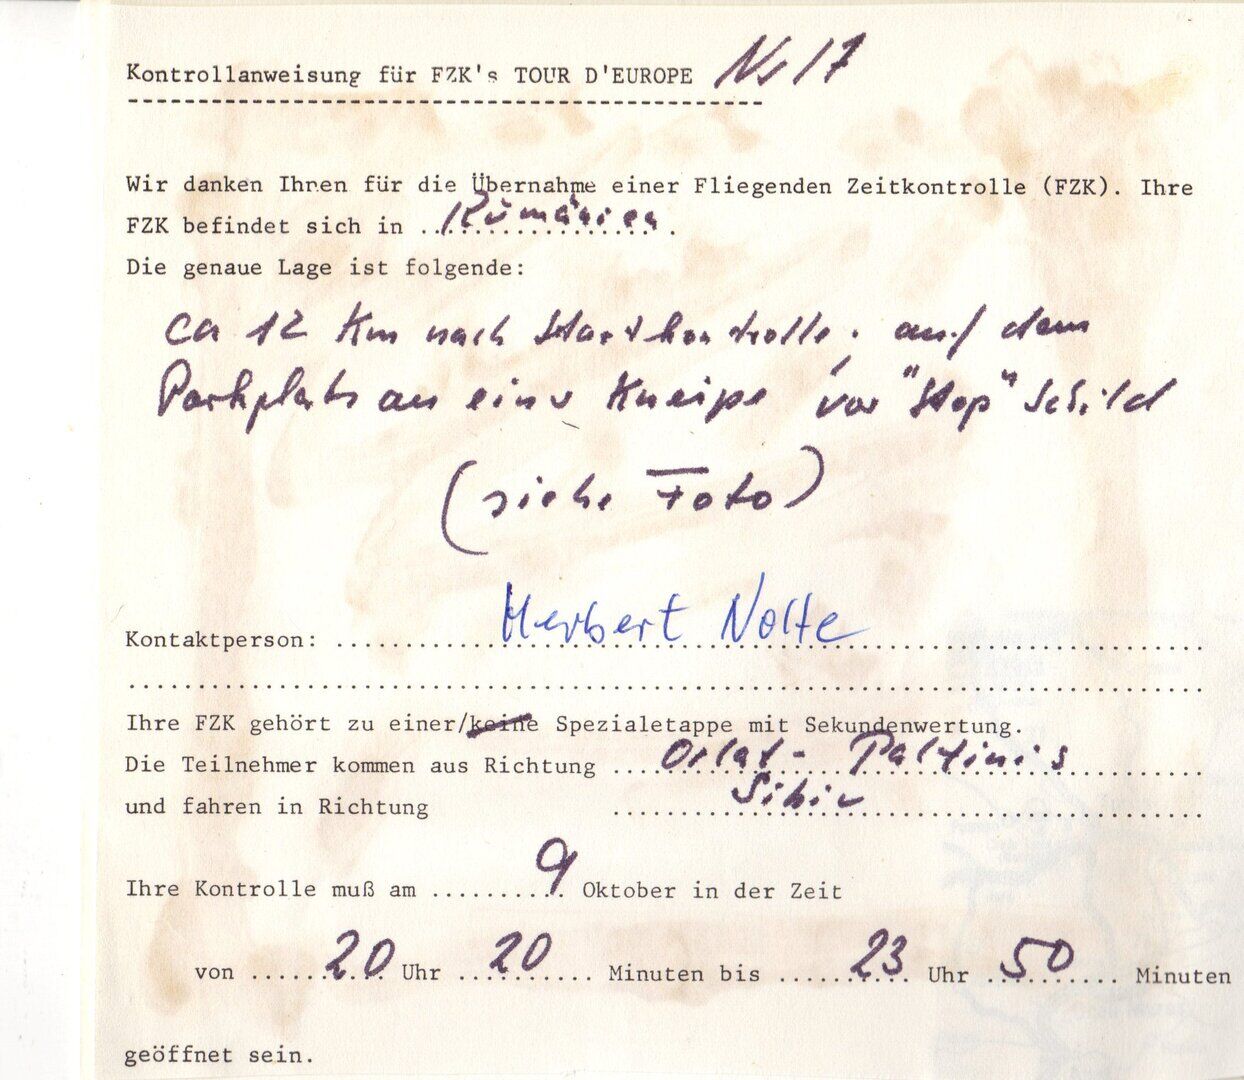 Kontrollanweisung für FZK's TOUR D'EUROPE Nr 17
Wir danken Ihnen für die Übernahme einer Fliegenden Zeitkontrolle (FZK). Ihre
FZK befindet sich in ..Rumänien.
Die genaue Lage ist folgende:
ca 12 Km nach Startkontrolle. auf dem
Parkplatz an einer Kneipe vor "Stop" Schild
(siehe Foto)
Kontaktperson: Herbert Nolte
Ihre FZK gehört zu einer/keine Spezialetappe mit Sekundenwertung.
Die Teilnehmer kommen aus Richtung Orlat - Paltinis
und fahren in Richtung Sibiu
Ihre Kontrolle muß am 9. Oktober in der Zeit
von 20 Uhr 20 Minuten bis 23 Uhr 50 Minuten
geöffnet sein.